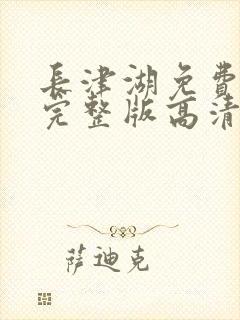 長津湖免費
完整版高清
萨迪克